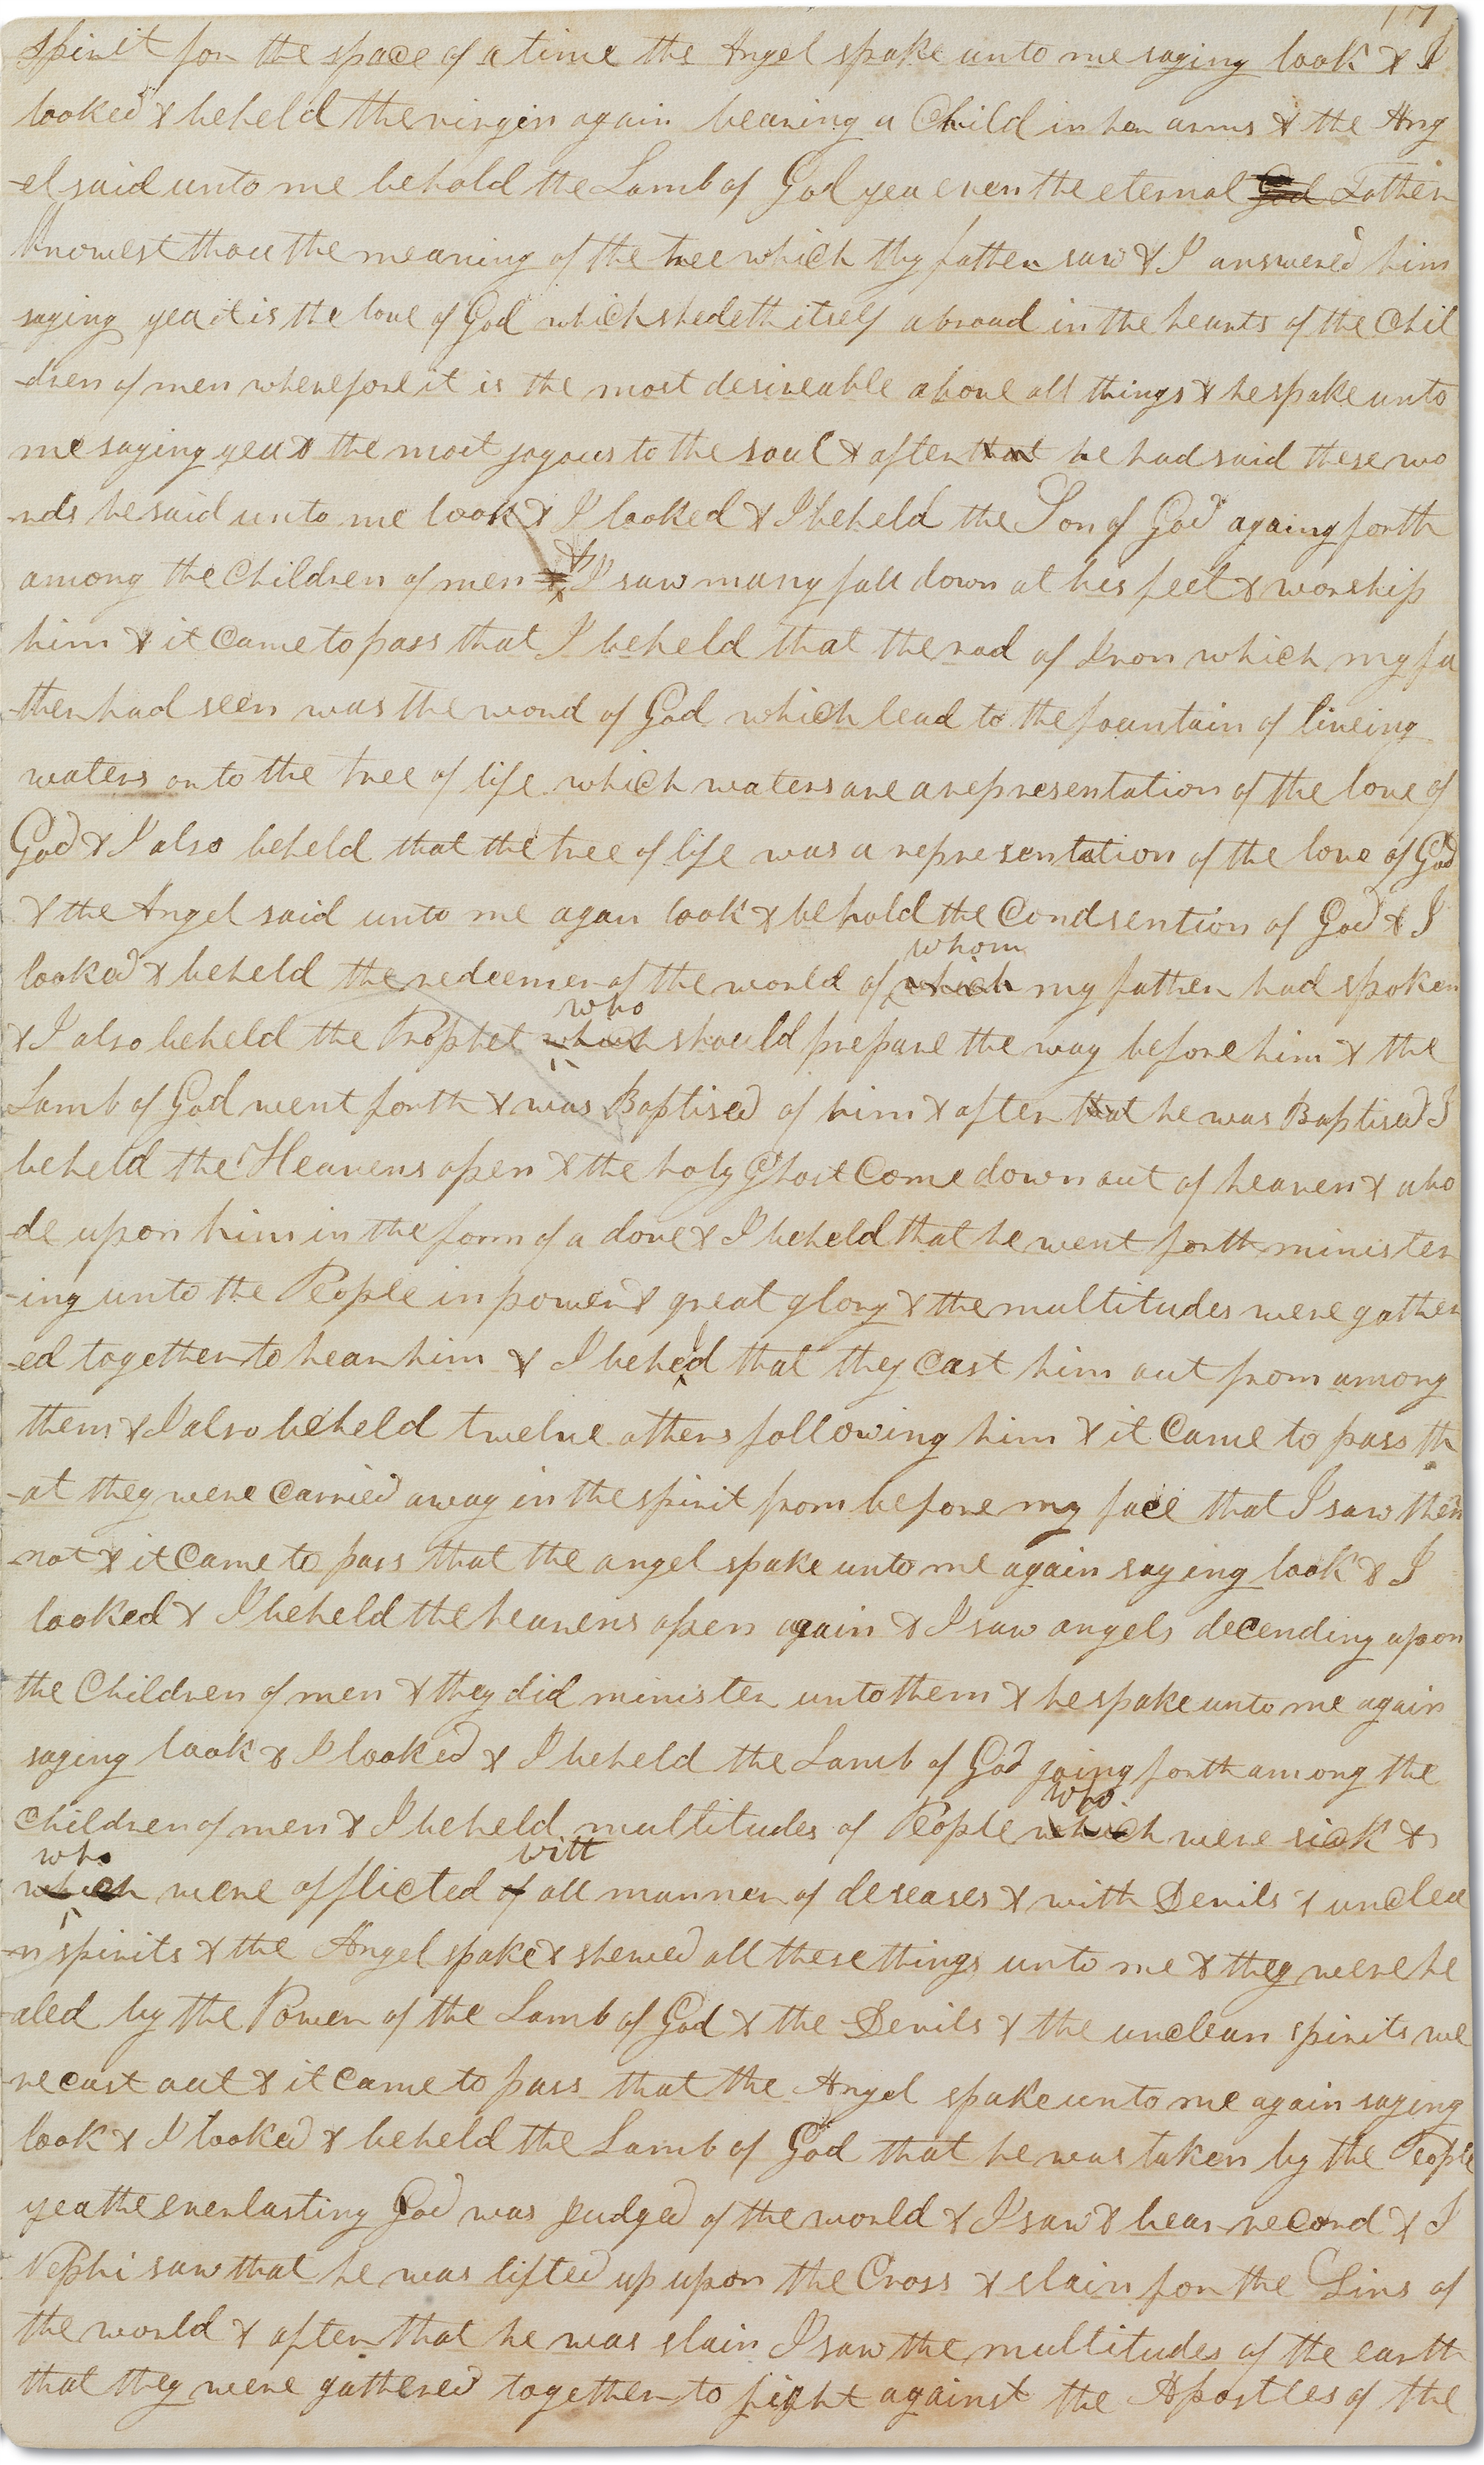 17
spirit for the space of a time the Angel spake unto me saying look & I
looked & beheld the virgin again bearing a Child in her arms & the Ang
-el said unto me behold the Lamb of God yea even the eternal God Father
knowest thou the meaning of the tree which thy father saw & I answered him
saying yea it is the love of God which shedeth itself abroad in the hearts of the Chil
-dren of men wherefore it is the most desireable above all things & he spake unto
me saying yea & the most joyous to the soul & after that he had said these wo
rds he said unto me look & I looked & I beheld the Son of God againg forth
among the Children of men & & I saw many fall down at his feet & worship
him & it Came to pass that I beheld that the rod of Iron which my fa
-ther had seen was the word of God which lead to the fountain of liveing
waters or to the tree of life which waters are a representation of the love of
God & I also beheld that the tree of life was a representation of the love of God
& the Angel said unto me agan look & behold the Condsention of God & I
whom
looked & beheld the redeemer of the world of which my father had spoken
who
& I also beheld the Prophet which should prepare the way before him & the
Lamb of God went forth & was Baptised of him & after that he was Baptised I
beheld the Heavens open & the holy Ghost Come down out of heaven & abo
-de upon him in the form of a dove & I beheld that he went forth minister
-ing unto the People in power & great glory & the multitudes were gather
-ed together to hear him & I beheld that they Cast him out from among
them & I also beheld twelve others following him & it Came to pass th
-at they were Carried away in the spirit from before my face that I saw them
not & it Came to pass that the angel spake unto me again saying look & I
looked & I beheld the heavens open again & I saw angels decending upon
the Children of men & they did minister unto them & he spake unto me again
saying look & I looked & I beheld the Lamb of God going forth among the
who
Children of men & I beheld multitudes of People which were sick &
who with
which were afflicted of all manner of deseases & with Devils & unclea
-n spirits & the Angel spake & shewed all these things unto me & they were he
-aled by the Power of the Lamb of God & the Devils & the unclean spirits we
-re cast out & it Came to pass that the Angel spake unto me again saying
look & I looked & beheld the Lamb of God that he was taken by the People
yea the everlasting God was Judged of the world & I saw & bear record & I
Nephi saw that he was lifted up upon the Cross & slain for the Sins of
the world & after that he was slain I saw the multitudes of the earth
that they were gathered together to fight against the Apostles of the